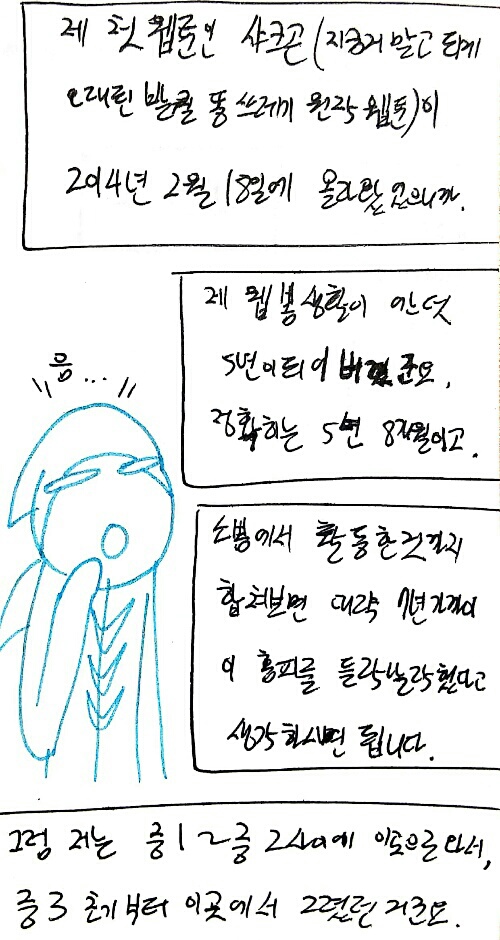 제 첫 웹툰인 샤크곤 (지금거 말고 되게
오래된 발퀄 똥 쓰레기 원작 웹툰)이
2014년 2월 18일에 올라왔었으니까.
제 웹봉생활이 어느덧
5년이 되어 버렸군요.
정확히는 5년 8개월이고.
음...
소봉에서 활동한것까지
합쳐보면 대략 7년가까이
이 홈피를 들락날락했다고
생각하시면 됩니다.
그럼 저는 중1~중2사이에 이곳으로 와서,
중3 초기부터 이곳에서 그렸던 거군요.